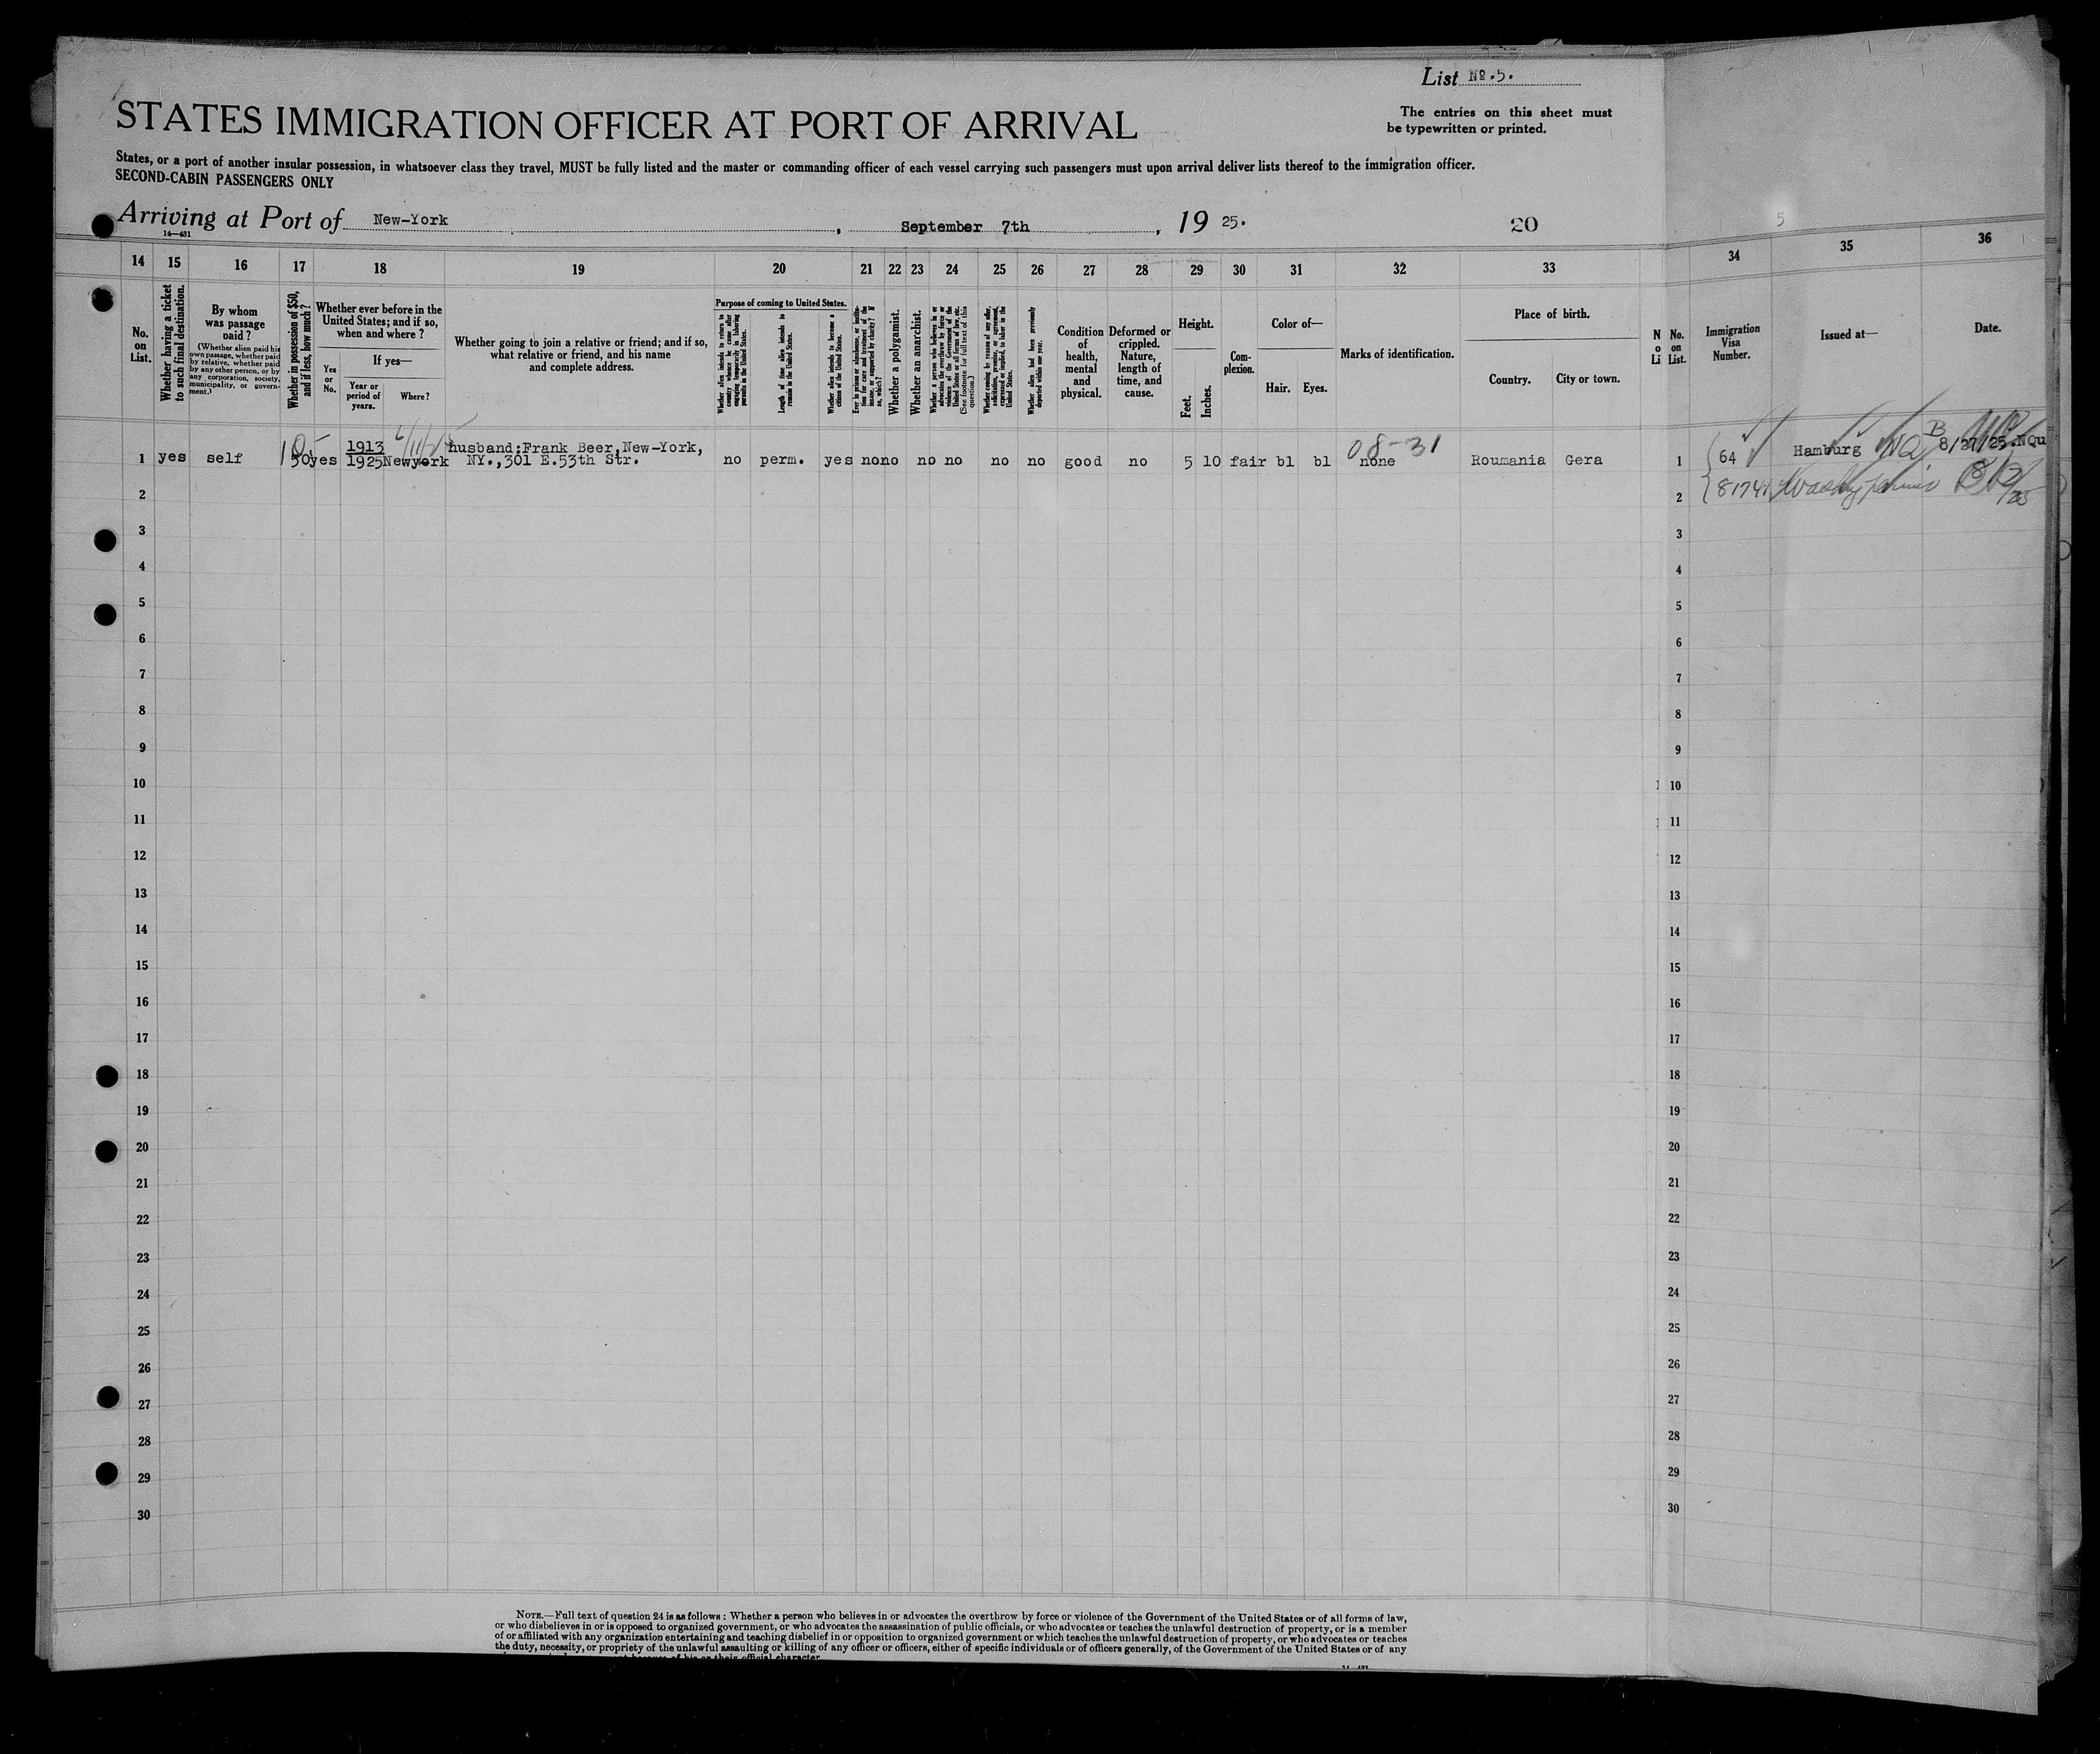 List No. 5.
STATES IMMIGRATION OFFICER AT PORT OF ARRIVAL
The entries on this sheet must
be typewritten or printed.
States, or a port of another insular possession, in whatsoever class they travel, MUST be fully listed and the master or commanding officer of each vessel carrying such passengers must upon arrival deliver lists thereof to the immigration officer.
SECOND-CABIN PASSENGERS ONLY
Arriving at Port of New-York, September 7th, 19 25. 20
14—431
5
14 15 16 17 18 19 20 21 22 23 24 25 26 27 28 29 30 31 32 33 34 35 36
No. on List.
Whether having a ticket to such final destination.
By whom was passage paid?
(Whether alien paid his own passage, whether paid by relative, whether paid by any other person, or by any corporation, society, municipality, or government.)
Whether in possession of $50, and if less, how much?
Whether ever before in the United States; and if so, when and where?
Yes or No.
If yes—
Year or period of years.
Where?
Whether going to join a relative or friend; and if so, what relative or friend, and his name and complete address.
Purpose of coming to United States.
Whether alien intends to return to country whence he came after engaging temporarily in laboring pursuits in the United States.
Length of time alien intends to remain in the United States.
Whether alien intends to become a citizen of the United States.
Ever in prison or almshouse, or institution for care and treatment of the insane, or supported by charity? If so, which?
Whether a polygamist.
Whether an anarchist.
Whether a person who believes in or advocates the overthrow by force or violence of the Government of the United States or all forms of law, etc. (See footnote for full text of this question.)
Whether coming by reason of any offer, solicitation, promise, or agreement, expressed or implied, to labor in the United States.
Whether alien had been previously deported within one year.
Condition of health, mental and physical.
Deformed or crippled. Nature, length of time, and cause.
Height.
Feet.
Inches.
Complexion.
Color of—
Hair.
Eyes.
Marks of identification.
Place of birth.
Country.
City or town.
No. on List.
Immigration Visa Number.
Issued at—
Date.
08-31
husband:Frank Beer,New-York,
1 yes self 50 yes 1913 1925 Newyork NY.,301 E.53th Str. no perm. yes no no no no no no good no 5 10 fair bl bl none Roumania Gera 1 64 Hamburg NQ 8/27/25.NQu
2 2 81741
3 3
4 4
5 5
6 6
7 7
8 8
9 9
10 10
11 11
12 12
13 13
14 14
15 15
16 16
17 17
18 18
19 19
20 20
21 21
22 22
23 23
24 24
25 25
26 26
27 27
28 28
29 29
30 30
NOTE.—Full text of question 24 is as follows: Whether a person who believes in or advocates the overthrow by force or violence of the Government of the United States or of all forms of law,
or who disbelieves in or is opposed to organized government, or who advocates the assassination of public officials, or who advocates or teaches the unlawful destruction of property, or is a member
of or affiliated with any organization entertaining and teaching disbelief in or opposition to organized government or which teaches the unlawful destruction of property, or who advocates or teaches
the duty, necessity, or propriety of the unlawful assaulting or killing of any officer or officers, either of specific individuals or of officers generally, of the Government of the United States or of any
of his or their official character.